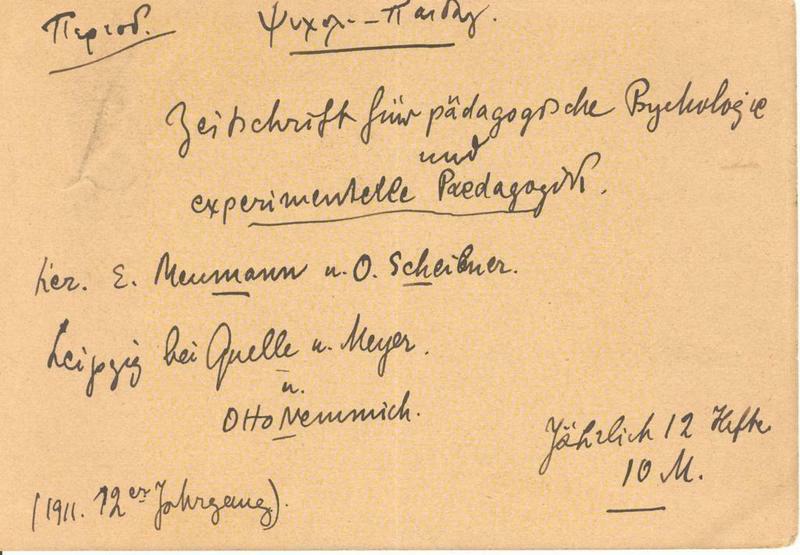 Περιοδ. Ψυχολ.-Παιδαγ.
Zeitschrift für pädagogische Psychologie
und
experimentelle Paedagogik.
her. E. Meumann u. O. Scheibner.
Leipzig bei Quelle u. Meyer.
u.
Otto Nemmich.
Jährlich 12 Hefte
10 M.
(1911. 12er Jahrgang).